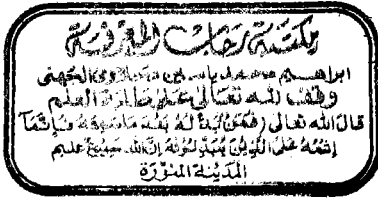 مكتبة رحاب المعرفة
ابراهيم محمد ياسين الجهني
وقف لله تعالى على طلبة العلم
قال الله تعالى فمن بدله بعد ما سمعه فإنما
إثمه على الذين يبدلونه إن الله سميع عليم
المدينة المنورة